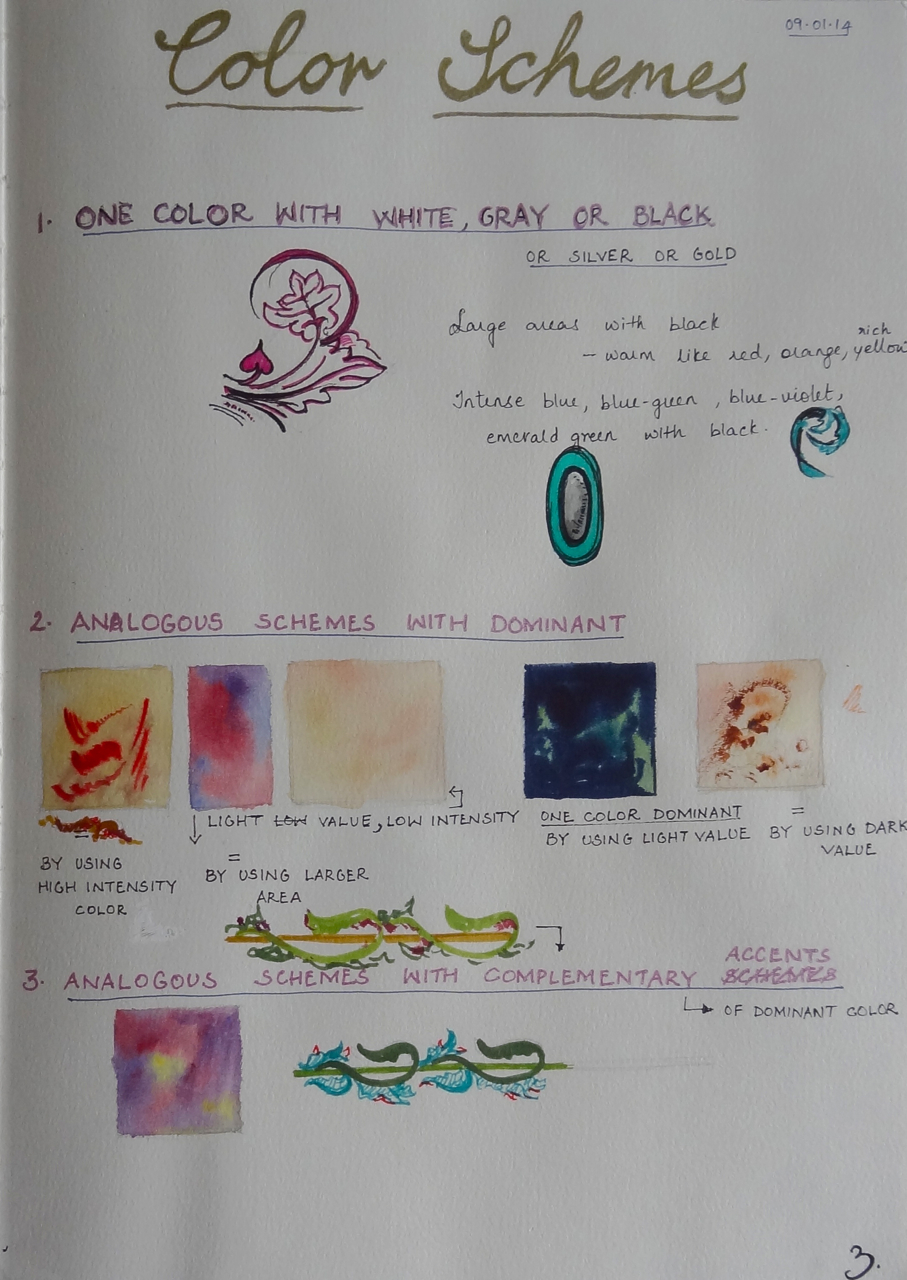 09.01.14
Color Schemes
1. ONE COLOR WITH WHITE, GRAY OR BLACK
OR SILVER OR GOLD
Large areas with black
rich
– warm like red, orange, yellow
Intense blue, blue-green, blue-violet,
emerald green with black.
2. ANALOGOUS SCHEMES WITH DOMINANT
=
BY USING
HIGH INTENSITY
COLOR
LIGHT LOW VALUE, LOW INTENSITY
=
BY USING LARGER
AREA
ONE COLOR DOMINANT
BY USING LIGHT VALUE
=
BY USING DARK
VALUE
3. ANALOGOUS SCHEMES WITH COMPLEMENTARY SCHEMES
ACCENTS
OF DOMINANT COLOR
3.